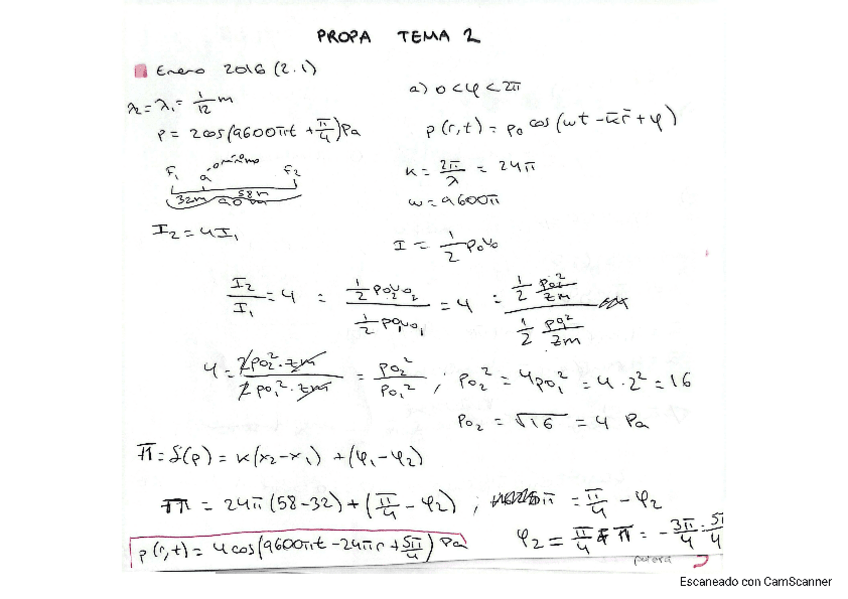 PROPA TEMA 2
Enero 2016 (2.1)
λ₂ = λ₁ = 1/12 m
a) 0 < φ < 2π
P = 2cos(9600πt + π/4) Pa
p(r,t) = p₀ cos(ωt - k̄r̄ + φ)
F₁ a mínimo F₂
32m 58m
90m
k = 2π/λ = 24π
ω = 9600π
I₂ = 4I₁
I = 1/2 p₀v₀
I₂/I₁ = 4 = (1/2 p₀₂v₀₂)/(1/2 p₀₁v₀₁) = 4 = (1/2 p₀₂²/zm)/(1/2 p₀₁²/zm)
4 = (2p₀₂²·zm)/(2p₀₁²·zm) = p₀₂²/p₀₁² ; p₀₂² = 4p₀₁² = 4·2² = 16
p₀₂ = √16 = 4 Pa
π = δ(p) = k(x₂-x₁) + (φ₁-φ₂)
π = 24π(58-32) + (π/4 - φ₂) ; π = π/4 - φ₂
p(r,t) = 4cos(9600πt - 24πr + 5π/4) Pa
φ₂ = π/4 - π = -3π/4 = 5π/4
Escaneado con CamScanner